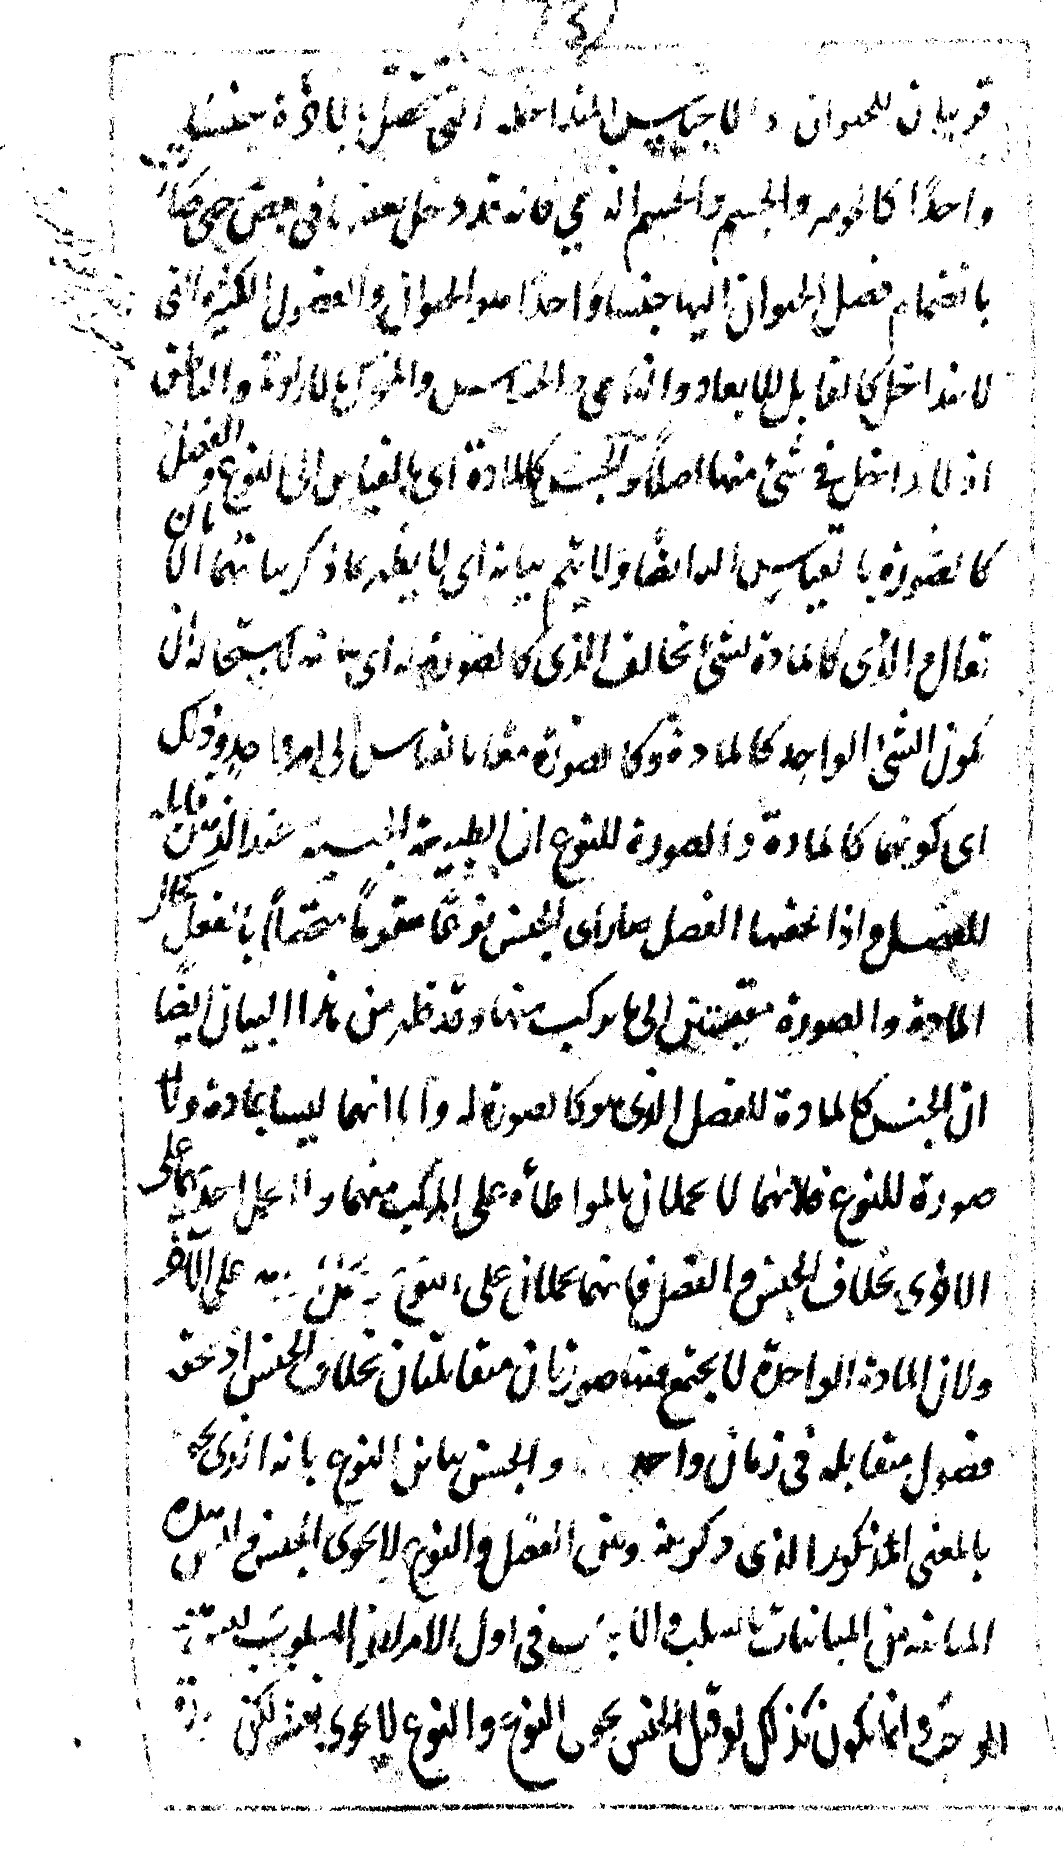 قريبان للحيوان والاجناس المتداخله التى تحصل بالاخرة جنسا
واحدًا كالجوهر والجسم والجسم النامي فانه قد دخل بعضها فى بعض حتى صار
بانضمام فصل الحيوان اليها جنسا واحدًا هو الحيوان والفصول الكثيرة التى
لا تتداخل كالقابل للابعاد والنامى والحساس والمتحرك بالارادة والناطق
اذ لا داخل فى شئ منها اصلًا والجنس كالمادة اى بالقياس الى النوع والفصل
كالصورة بالقياس اليه ايضًا ولا يتم بيانه اى لا يظهر بما ذكر بيانهما الا بان
يقال الذى كالمادة لشئ يخالف الذى كالصورة له اى بيانه لاستحالة ان
يكون الشئ الواحد كالمادة وكالصورة معًا بالقياس الى امر واحد وذلك
اى كونهما كالمادة والصورة للنوع ان الطبيعة الجنسية عند الذهن قابلة
للفصل واذا لحقها الفصل صار اى الجنس نوعًا مقومًا متحصلًا بالفعل كحال
المادة والصورة مقيستين الى ما يركب منهما وقد ظهر من هذا البيان ايضًا
ان الجنس كالمادة للفصل الذى هو كالصورة له واما انهما ليسا بمادة ولا
صورة للنوع فلانهما لا يحملان بالمواطأة على المركب منهما ولا يحمل احديهما على
الاخرى بخلاف الجنس والفصل فانهما يحملان على النوع على الآخر
ولان المادة الواحدة لا يجتمع فيها صورتان متقابلتان بخلاف الجنس اذ تحته
فصول متقابله فى زمان واحد والجنس يباين النوع بانه الذى يحوى
بالمعنى المذكور الذى ذكر منه وبين الفصل والنوع لا يحوى الجنس
المباينه من المباينات بالسلب والايجاب فى اول الامر لان السلوب
الموجبة وانما يكون كذلك لو قيل الجنس يحوى النوع والنوع لا يحوى بعضه لكن